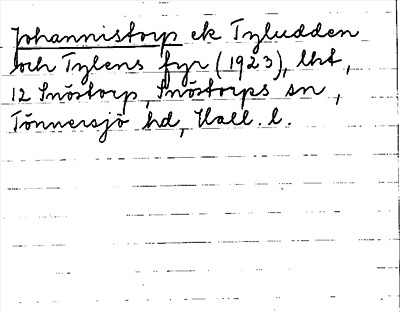 Johannistorp ek Tyludden
och Tylens fyr (1923), lht,
12 Snöstorp, Snöstorps sn,
Tönnersjö hd, Hall. l.